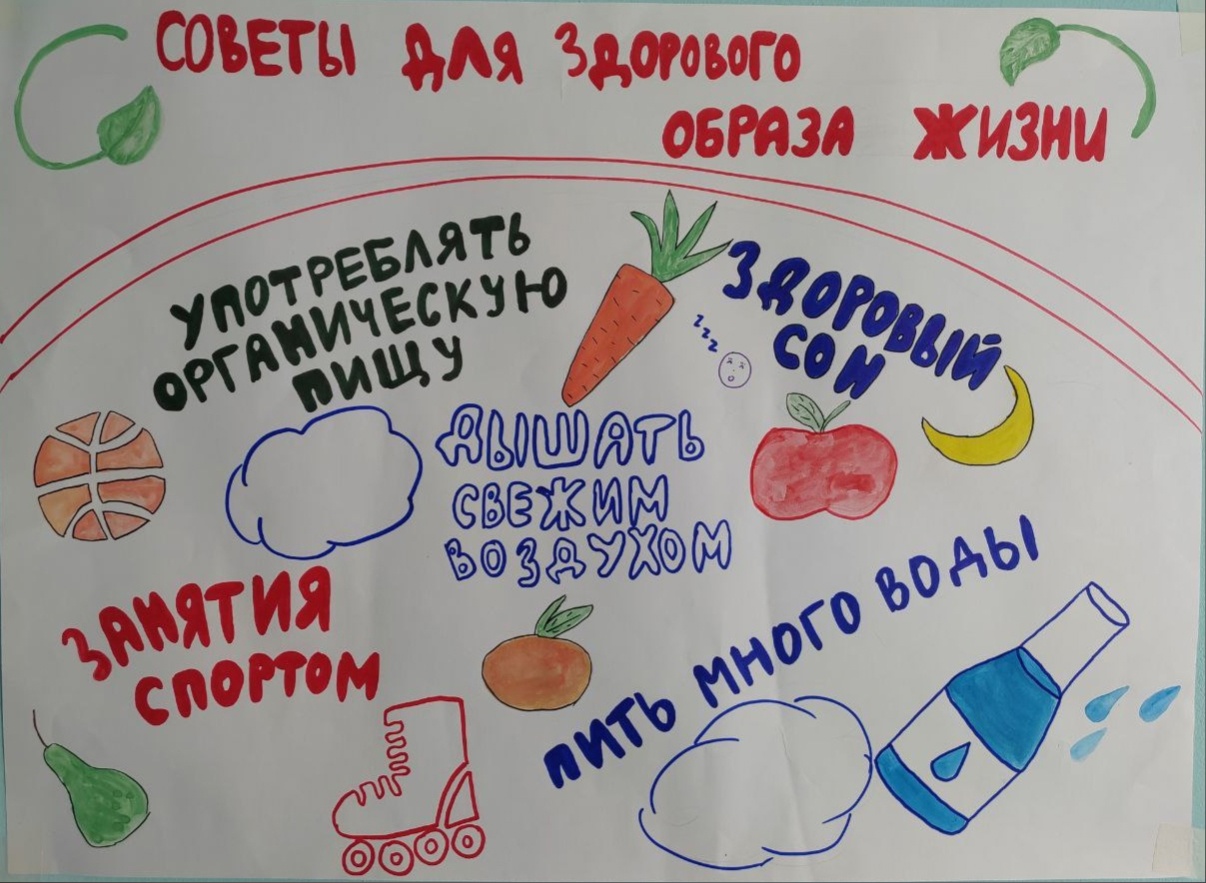 СОВЕТЫ ДЛЯ ЗДОРОВОГО
ОБРАЗА ЖИЗНИ
УПОТРЕБЛЯТЬ
ОРГАНИЧЕСКУЮ
ПИЩУ
zzz
ЗДОРОВЫЙ
СОН
ДЫШАТЬ
СВЕЖИМ
ВОЗДУХОМ
ЗАНЯТИЯ
СПОРТОМ
ПИТЬ МНОГО ВОДЫ